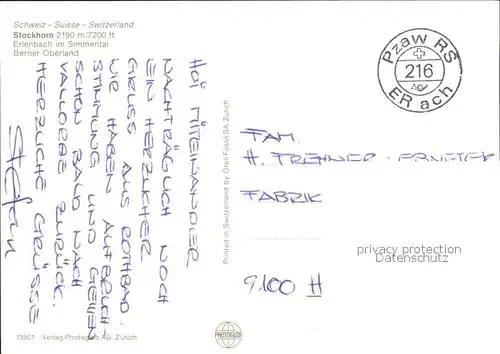 Schweiz – Suisse – Switzerland
Stockhorn 2190 m/7200 ft.
Erlenbach im Simmental
Berner Oberland
HOI MITEINANDER
NACHTRÄGLICH NOCH
EIN HERZLICHER
GRUSS AUS ROTHBAD.
WIR HABEN AUFBRUCH-
STIMMUNG UND GEHEN
SCHON BALD NACH
VALLORBE ZURÜCK.
HERZLICHE GRÜSSE
Stefan
Printed in Switzerland by Orell Füssli SA Zürich
Pzaw RS
216
ER ach
FAM.
H.
FABRIK
9100 H
privacy protection
Datenschutz
13501 Verlag Photoglob AG, Zürich
PHOTOGLOB